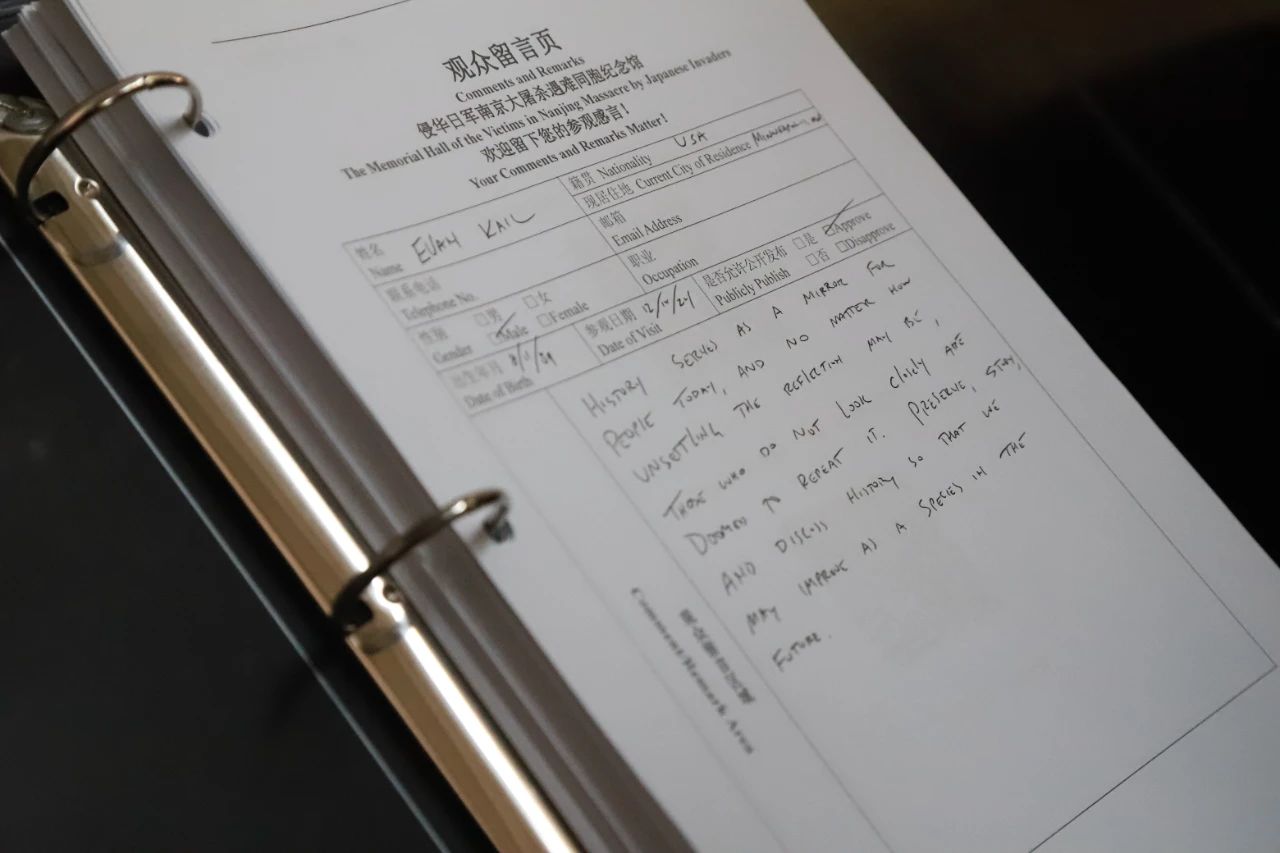 观众留言页
Comments and Remarks
侵华日军南京大屠杀遇难同胞纪念馆
The Memorial Hall of the Victims in Nanjing Massacre by Japanese Invaders
欢迎留下您的参观感言！
Your Comments and Remarks Matter!
姓名 Name EVAN KAIL
籍贯 Nationality USA
现居住地 Current City of Residence
联系电话 Telephone No.
邮箱 Email Address
性别 Gender □男 Male □女 □Female
职业 Occupation
出生年月 Date of Birth
参观日期 Date of Visit
是否允许公开发布 Publicly Publish □是 Approve □否 □Disapprove
HISTORY SERVES AS A MIRROR FOR
PEOPLE TODAY, AND NO MATTER HOW
UNSETTLING THE REFLECTION MAY BE,
THOSE WHO DO NOT LOOK CLOSELY ARE
DOOMED TO REPEAT IT. PRESERVE, STUDY,
AND DISCUSS HISTORY SO THAT WE
MAY IMPROVE AS A SPECIES IN THE
FUTURE.
Comment/Remark Area